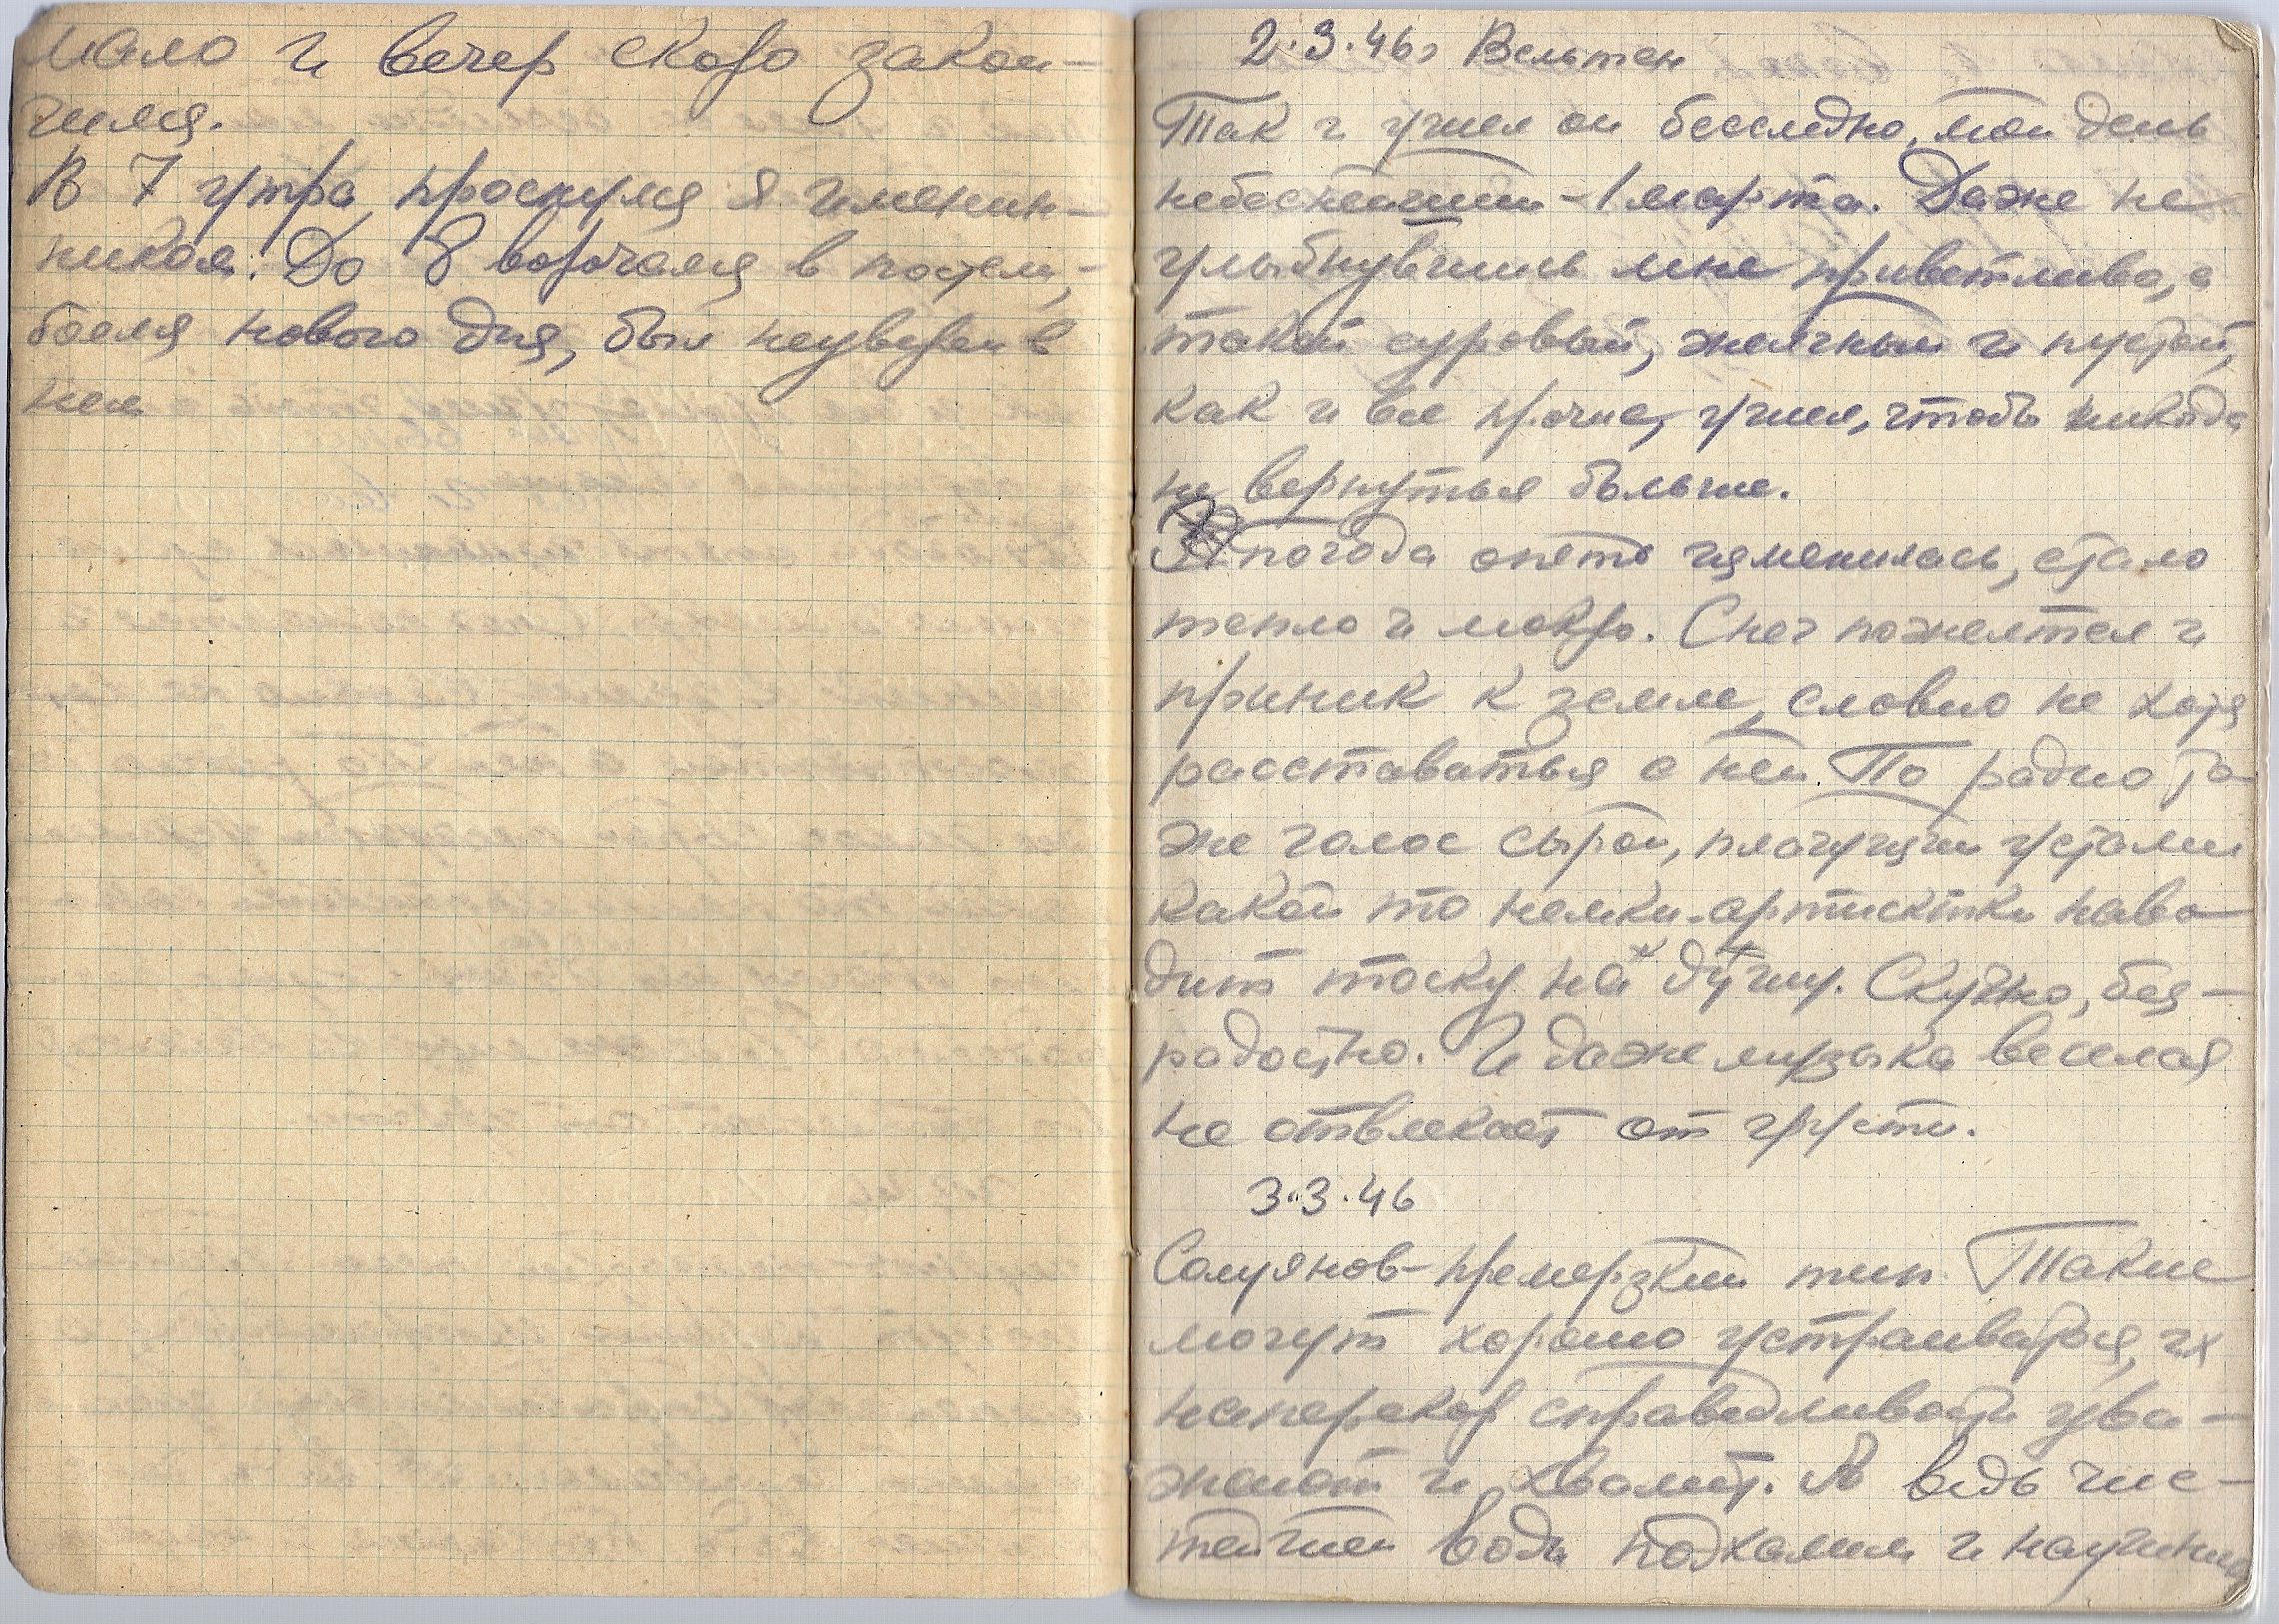 мало и вечер скоро закон-
чился.
В 7 утра проснулся я именин-
ником. До 8 ворочался в постели,-
боялся нового дня, был неуверен в
нем
2.3.46г Вельтен
Так и ушел он бесследно, мой день
небеснейший - 1 марта. Даже не
улыбнувшись мне приветливо, а
такой суровый, желчный и пустой,
как и все прочие, ушел, чтобы никогда
не вернуться больше.
погода опять изменилась, стало
тепло и мокро. Снег пожелтел и
приник к земле, словно не хотя
расставаться с ней. По радио то
же голос сырой, плачущий устами
какой то немки-артистки наво-
дит тоску на душу. Скучно, без-
радостно. И даже музыка веселая
не отвлекает от грусти.
3.3.46
Солуянов - премерзкий тип. Такие
могут хорошо устраиваться, их
наперекор справедливости ува-
жают и хвалят. А ведь чис-
тейшей воды подхалим и